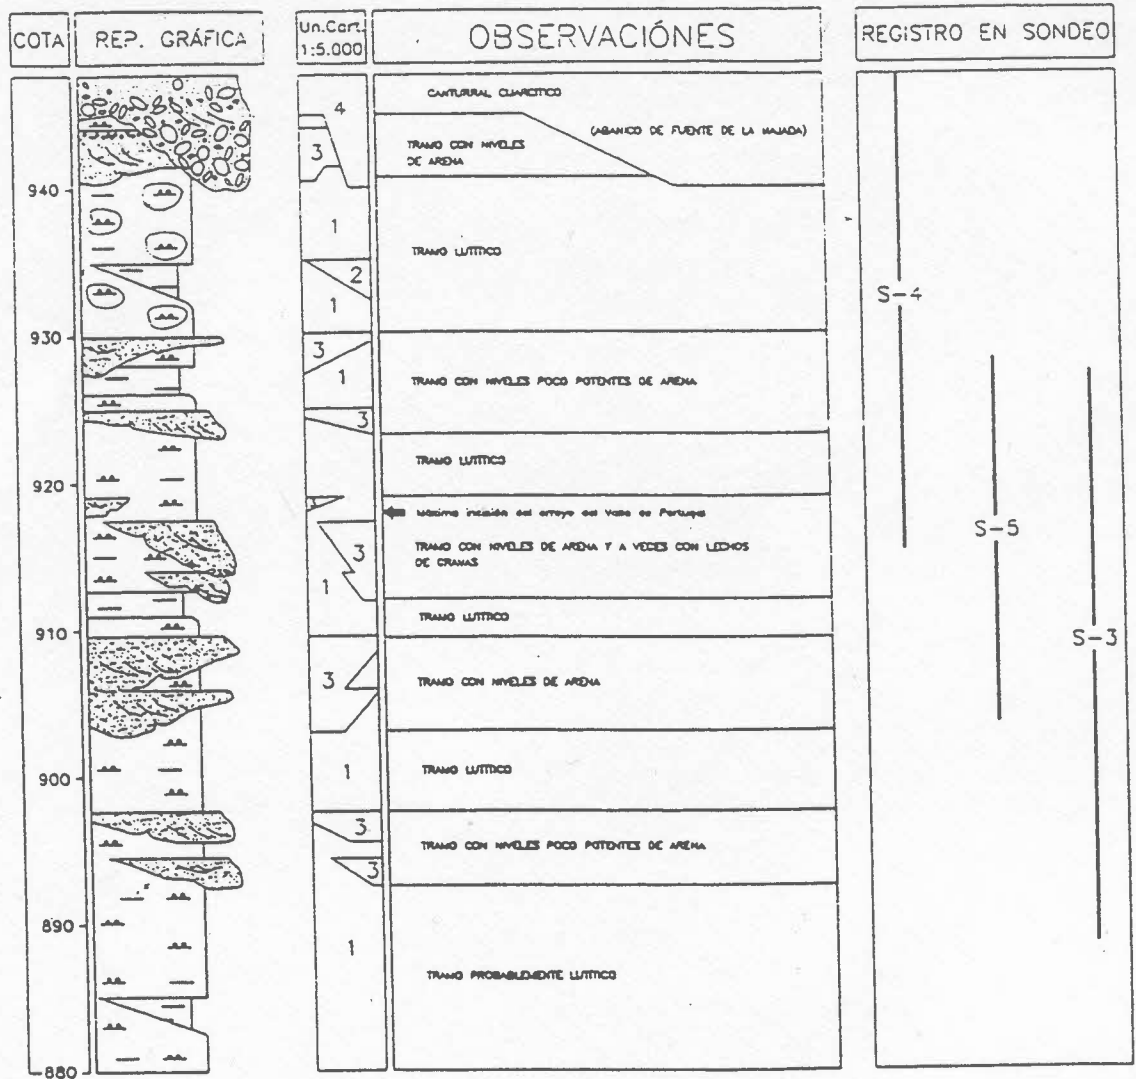 COTA
REP. GRÁFICA
Un.Cart.
1:5.000
OBSERVACIÓNES
REGISTRO EN SONDEO
CANTURRAL CUARCITICO
4
(ABANICO DE FUENTE DE LA MAJADA)
TRAMO CON NIVELES
DE ARENA
3
940
1
TRAMO LUTITICO
2
1
S-4
930
3
1
TRAMO CON NIVELES POCO POTENTES DE ARENA
3
TRAMO LUTITICO
920
Máxima incisión del arroyo del Valle de Portugal
S-5
3
TRAMO CON NIVELES DE ARENA Y A VECES CON LECHOS
DE GRAVAS
1
TRAMO LUTITICO
910
S-3
3
TRAMO CON NIVELES DE ARENA
900
1
TRAMO LUTITICO
3
TRAMO CON NIVELES POCO POTENTES DE ARENA
3
890
1
TRAMO PROBABLEMENTE LUTITICO
880